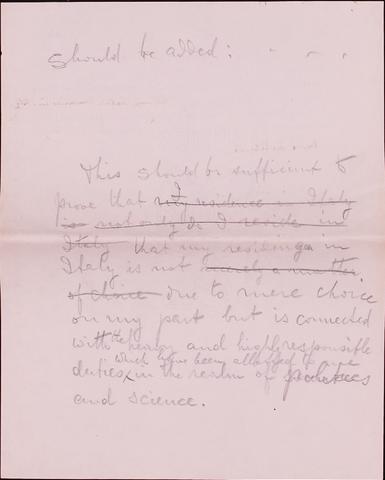 should be added: . - .
This should be sufficient to
prove that my residence in Italy
is not only do I reside in
Italy that my residence in
Italy is not merely a matter
of choice due to mere choice
on my part but is connected
with the heavy and highly responsible
which have been allotted to me
duties in the realm of
and science.